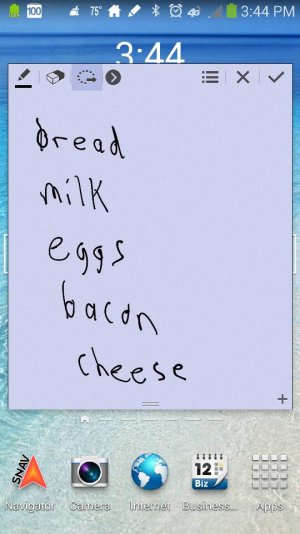 100 75° 4G 3:44 PM
3:44
bread
milk
eggs
bacon
cheese
SNAV 12 Biz
Navigator Camera Internet Business... Apps